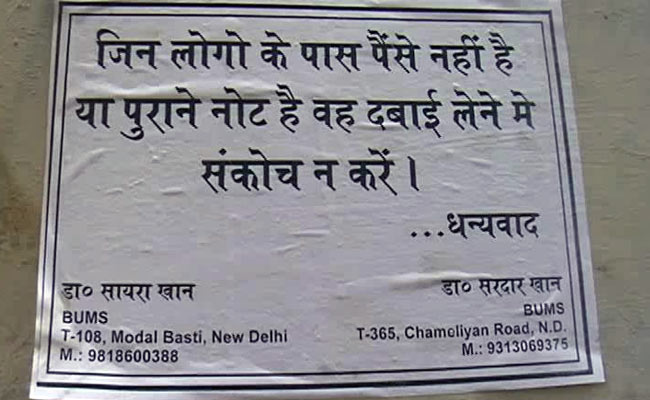 जिन लोगो के पास पैंसे नहीं है
या पुराने नोट है वह दबाई लेने मे
संकोच न करें।
...धन्यवाद
डा० सायरा खान
BUMS
T-108, Modal Basti, New Delhi
M.: 9818600388
डा० सरदार खान
BUMS
T-365, Chameliyan Road, N.D.
M.: 9313069375